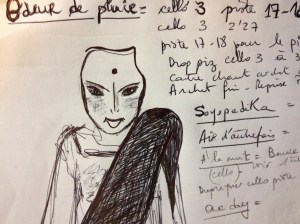 Odeur de pluie = cello 3 piste 17-18
cello 3 2'27
piste 17-18 pour le pi
Drop piz cello 3 à 3
Contre chant archet
Archet fin - Reprise
Sayopadika =
Air d'autrefois =
A la nuit = Boucle
(cello)
cello piste
Our day =